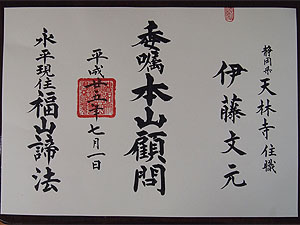 静岡県
天林寺住職
伊藤文元
委嘱本山顧問
平成廿五年七月一日
永平現住福山諦法